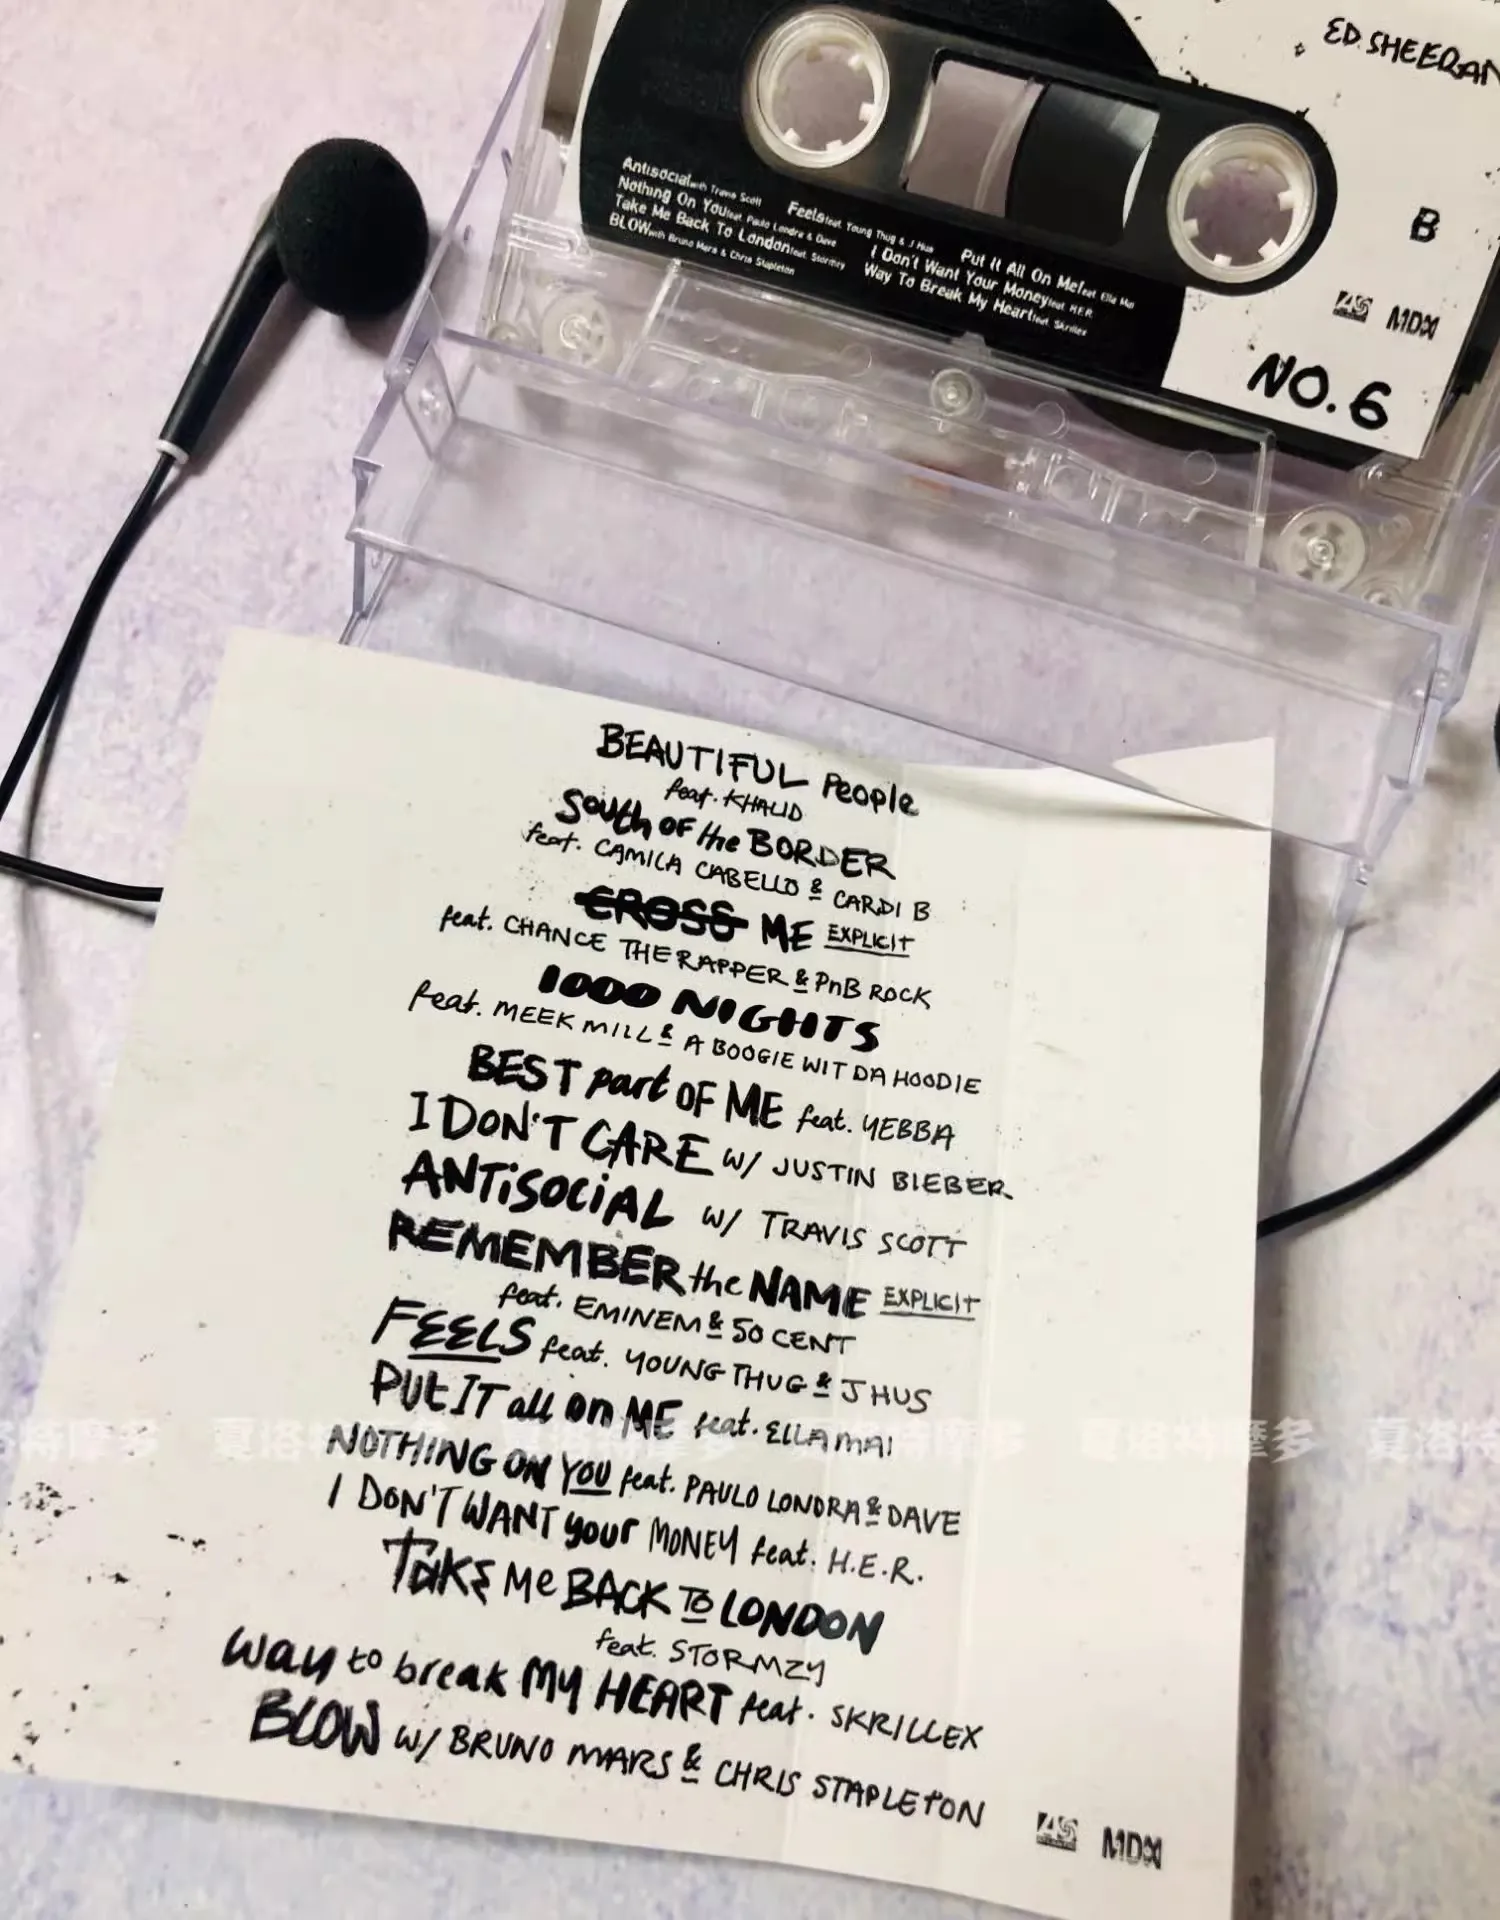 ED SHEERAN
B
AS MDN
NO.6
Antisocial with Travis Scott
Nothing On You feat. Paulo Londra & Dave
Take Me Back To London feat. Stormzy
BLOW with Bruno Mars & Chris Stapleton
Feels feat. Young Thug & J Hus
Put It All On Me feat. Ella Mai
I Don't Want Your Money feat. H.E.R.
Way To Break My Heart feat. Skrillex
BEAUTIFUL People
feat. KHALID
South OF the BORDER
feat. CAMILA CABELLO & CARDI B
CROSS ME EXPLICIT
feat. CHANCE THE RAPPER & PnB ROCK
1000 NIGHTS
feat. MEEK MILL & A BOOGIE WIT DA HOODIE
BEST part OF ME feat. YEBBA
I DON'T CARE W/ JUSTIN BIEBER
ANTiSOCiAL W/ TRAVIS SCOTT
REMEMBER the NAME EXPLICIT
feat. EMINEM & 50 CENT
FEELS feat. YOUNG THUG & J HUS
PUt IT all on ME feat. ELLA MAI
NOTHING ON YOU feat. PAULO LONDRA & DAVE
I DON'T WANT your MONEY feat. H.E.R.
TaKE Me BACK TO LONDON
feat. STORMZY
way to break MY HEART feat. SKRILLEX
BLOW W/ BRUNO MARS & CHRIS STAPLETON
夏洛特摩多